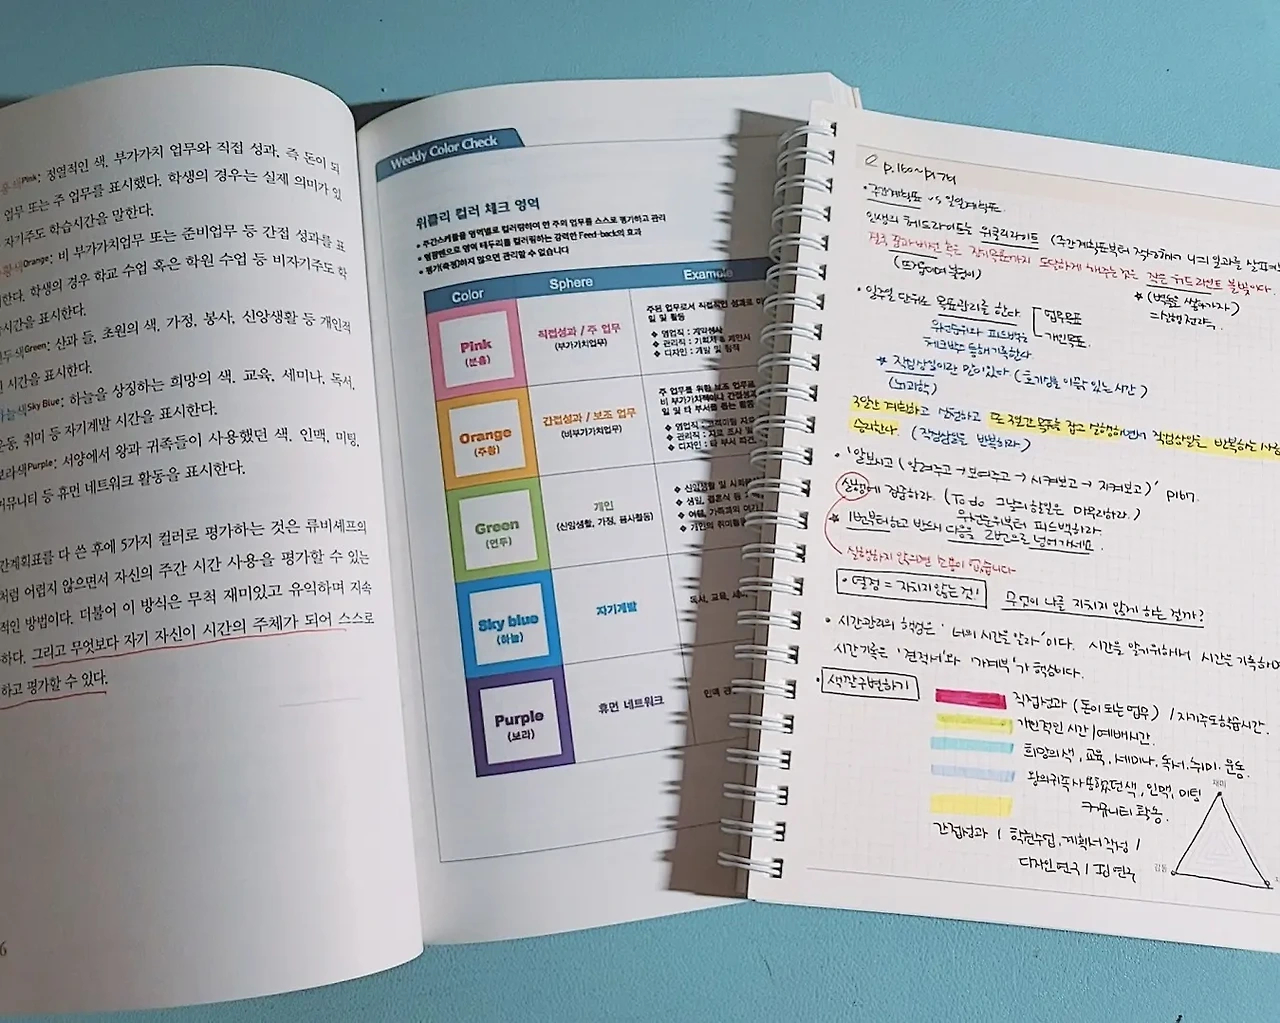 Pink: 정열적인 색. 부가가치 업무와 직접 성과. 즉 돈이 되
업무 또는 주 업무를 표시했다. 학생의 경우는 실제 의미가 있
자기주도 학습시간을 말한다.
Orange: 비 부가가치업무 또는 준비업무 등 간접 성과를 표
한다. 학생의 경우 학교 수업 혹은 학원 수업 등 비자기주도 학
시간을 표시한다.
두색Green: 산과 들, 초원의 색. 가정, 봉사, 신앙생활 등 개인적
시간을 표시한다.
늘색Sky Blue: 하늘을 상징하는 희망의 색. 교육, 세미나, 독서,
운동, 취미 등 자기계발 시간을 표시한다.
보라색Purple: 서양에서 왕과 귀족들이 사용했던 색. 인맥, 미팅,
커뮤니티 등 휴먼 네트워크 활동을 표시한다.
간계획표를 다 쓴 후에 5가지 컬러로 평가하는 것은 류비셰프의
처럼 어렵지 않으면서 자신의 주간 시간 사용을 평가할 수 있는
적인 방법이다. 더불어 이 방식은 무척 재미있고 유익하며 지속
하다. 그리고 무엇보다 자기 자신이 시간의 주체가 되어 스스로
하고 평가할 수 있다.
6
Weekly Color Check
위클리 컬러 체크 영역
• 주간스케줄을 영역별로 컬러링하여 한 주의 업무를 스스로 평가하고 관리
• 형광펜으로 영역 테두리를 컬러링하는 강력한 Feed-back의 효과
• 평가(측정)하지 않으면 관리할 수 없습니다
Color Sphere Example
Pink
(분홍)
직접성과 / 주 업무
(부가가치업무)
주된 업무로서 직접적인 성과로 이
일 및 활동
❖ 영업직 : 계약성사
❖ 관리직 : 기획서 & 제안서
❖ 디자인 : 개발 및 창작
Orange
(주황)
간접성과 / 보조 업무
(비부가가치업무)
주 업무를 위한 보조 업무로
비 부가가치적이나 간접성과
일 및 타 부서를 돕는 활동
❖ 관리직 : 자료 조사 및
❖ 디자인 : 타 부서 파견
Green
(연두)
개인
(신앙생활, 가정, 봉사활동)
❖ 신앙생활 및 사회봉
❖ 생일, 결혼식 등
❖ 여행, 가족과의 여가
❖ 개인의 취미활
Sky blue
(하늘)
자기계발
독서, 교육, 세
Purple
(보라)
휴먼 네트워크
인맥 관
p.160~p.174
• 주간계획표 vs 일일계획표
인생의 헤드라이트는 위클리라이트 (주간계획표부터 작성해서 너의 일과를 살펴보
결국 꿈과 비전 혹은 장기목표까지 도달하게 해주는 것은 작은 헤드라이트 불빛이다.
★ (벽돌을 쌓아가자)
=실행전략.
• 일주일 단위로 목표관리를 한다 업무목표
개인목표
우선순위와 피드백을
체크박스 등에 기록한다
★ 작심삼일이란 말이 있다 (호기심을 이끌 수 있는 시간)
(뇌과학)
3일간 계획하고 실천하고 또 3일간 목표를 잡고 실행하면서 작심삼일을 반복하는 사람
승리한다. (작심삼일을 반복하라)
• '알보시고 (알려주고→보여주고→시켜보고→지켜보고)' p167.
실행에 집중하라. (To do 그날의 할일은 미루지마라.)
우선순위부터 피드백하라
★ 1번부터하고 반드시 다음을 2번으로 넘어가세요.
실행하지 않으면 소용이 없습니다
• 열정 = 지치지 않는 것! 무엇이 나를 지치지 않게 하는 걸까?
• 시간관리의 핵심은 '너의 시간을 알라'이다. 시간을 알기위해서 시간을 기록하
시간기록은 '견적서'와 '가계부'가 핵심이다.
• 색깔구별하기
직접성과 (돈이 되는 업무) / 자기주도학습시간.
개인적인 시간 / 예배시간.
희망의색, 교육, 세미나, 독서, 취미, 운동.
왕의귀족사용했던색, 인맥, 미팅
커뮤니티 활동.
간접성과 / 학원수업, 계획서 작성 /
디자인 연구 /
재미
감동